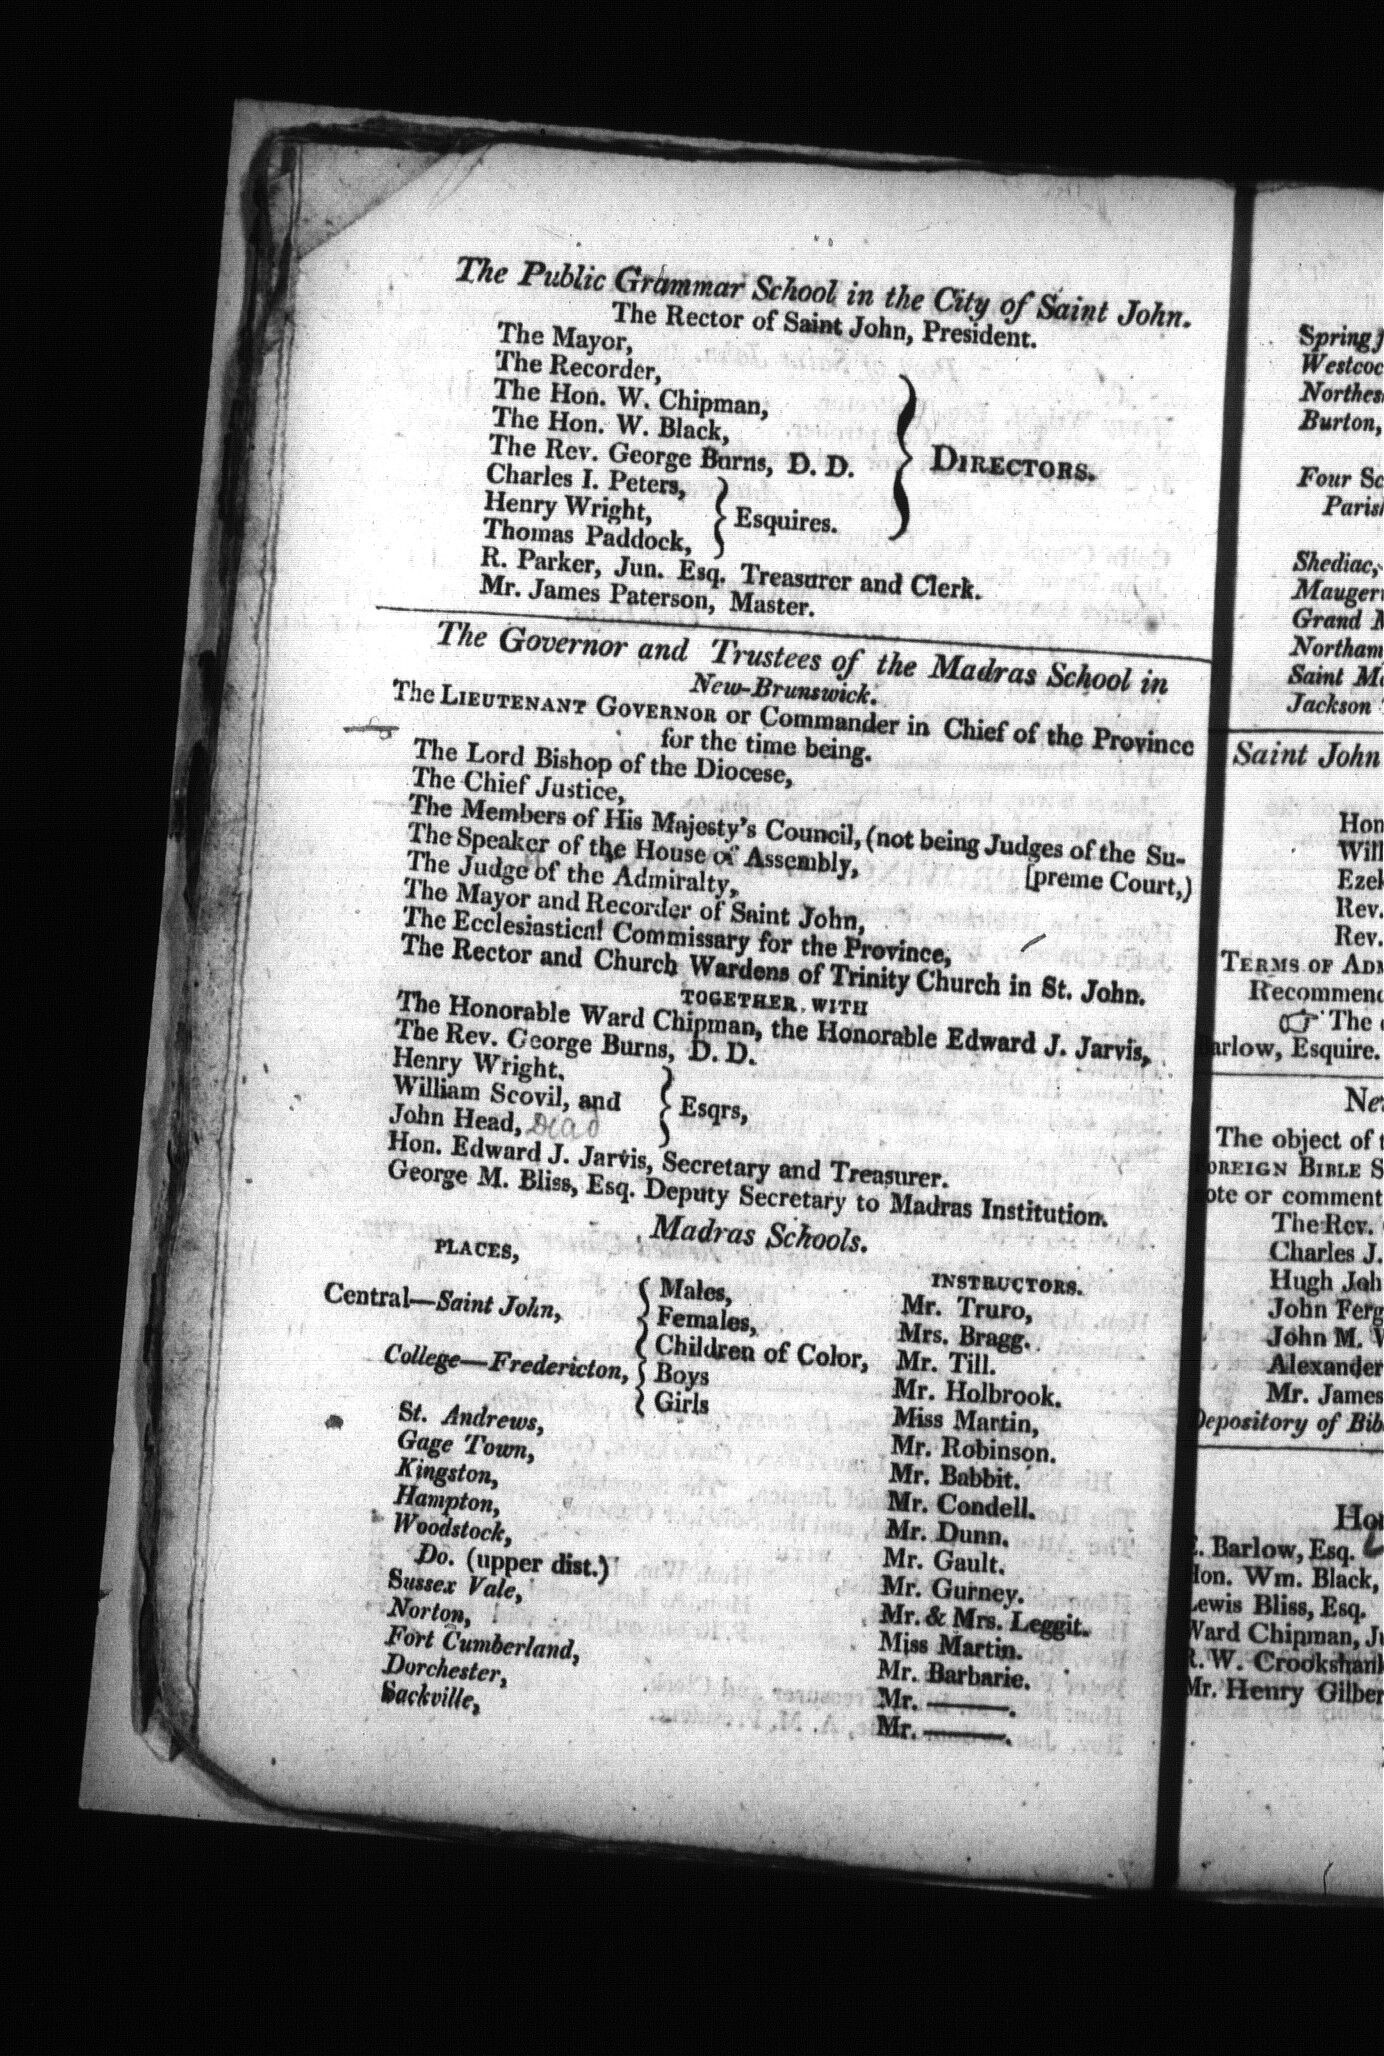 The Public Grammar School in the City of Saint John.
The Rector of Saint John, President.
The Mayor,
The Recorder,
The Hon. W. Chipman,
The Hon. W. Black,
The Rev. George Burns, D. D.
DIRECTORS.
Charles I. Peters,
Henry Wright,
Esquires.
Thomas Paddock,
R. Parker, Jun. Esq. Treasurer and Clerk.
Mr. James Paterson, Master.
The Governor and Trustees of the Madras School in
New-Brunswick.
The LIEUTENANT GOVERNOR or Commander in Chief of the Province
for the time being.
The Lord Bishop of the Diocese,
The Chief Justice,
The Members of His Majesty's Council, (not being Judges of the Su-
[preme Court,)
The Speaker of the House of Assembly,
The Judge of the Admiralty,
The Mayor and Recorder of Saint John,
The Ecclesiastical Commissary for the Province,
The Rector and Church Wardens of Trinity Church in St. John.
TOGETHER WITH
The Honorable Ward Chipman, the Honorable Edward J. Jarvis,
The Rev. George Burns, D. D.
Henry Wright,
William Scovil, and
Esqrs,
John Head, Dead
Hon. Edward J. Jarvis, Secretary and Treasurer.
George M. Bliss, Esq. Deputy Secretary to Madras Institution.
Madras Schools.
PLACES,
INSTRUCTORS.
Central—Saint John,
Males,
Females,
Children of Color,
College—Fredericton,
Boys
Girls
St. Andrews,
Gage Town,
Kingston,
Hampton,
Woodstock,
Do. (upper dist.)
Sussex Vale,
Norton,
Fort Cumberland,
Dorchester,
Sackville,
Mr. Truro,
Mrs. Bragg.
Mr. Till.
Mr. Holbrook.
Miss Martin,
Mr. Robinson.
Mr. Babbit.
Mr. Condell.
Mr. Dunn.
Mr. Gault.
Mr. Gurney.
Mr. & Mrs. Leggit.
Miss Martin.
Mr. Barbarie.
Mr. ———.
Mr. ———.
Spring
Westcoc
Northes
Burton,
Four Sc
Paris
Shediac,
Mauger
Grand
Northam
Saint
Jackson
Saint John
Hon
Will
Ezek
Rev.
Rev.
TERMS OF ADM
Recommend
☞ The
arlow, Esquire.
Ne
The object of
OREIGN BIBLE S
ote or comment
The Rev.
Charles J.
Hugh Joh
John Ferg
John M.
Alexander
Mr. James
Depository of Bib
Hon
. Barlow, Esq.
Hon. Wm. Black,
Lewis Bliss, Esq.
Ward Chipman, Ju
R. W. Crookshank
Mr. Henry Gilber